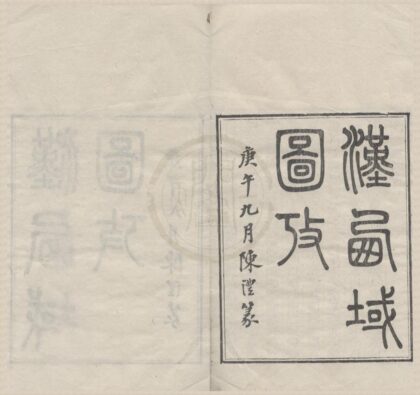 漢西域
圖攷
庚午九月陳澧篆